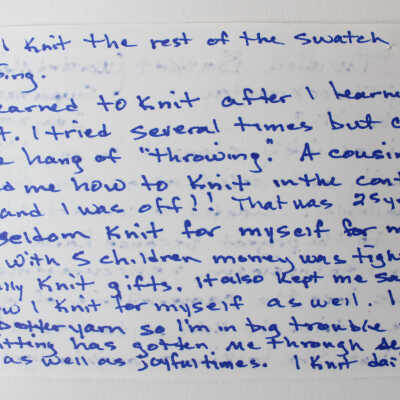 I knit the rest of the swatch
sing.
earned to knit after I learne
t. I tried several times but c
e hang of "throwing." A cousin
d me how to knit in the cont
and I was off!! That was 25 y
seldom knit for myself for m
with 5 children money was tigh
lly knit gifts. It also kept me sa
w I knit for myself as well. I
better yarn so I'm in big trouble
itting has gotten me through de
as well as joyful times. I knit dai